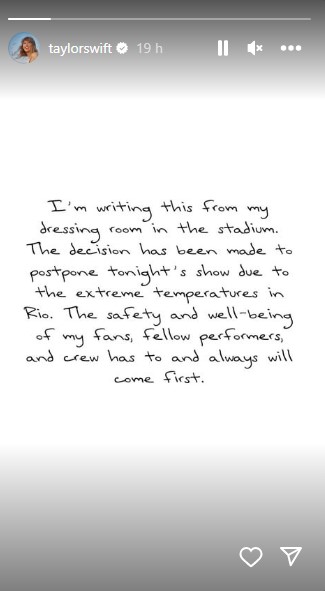 taylorswift 19 h
I'm writing this from my
dressing room in the stadium.
The decision has been made to
postpone tonight's show due to
the extreme temperatures in
Rio. The safety and well-being
of my fans, fellow performers,
and crew has to and always will
come first.